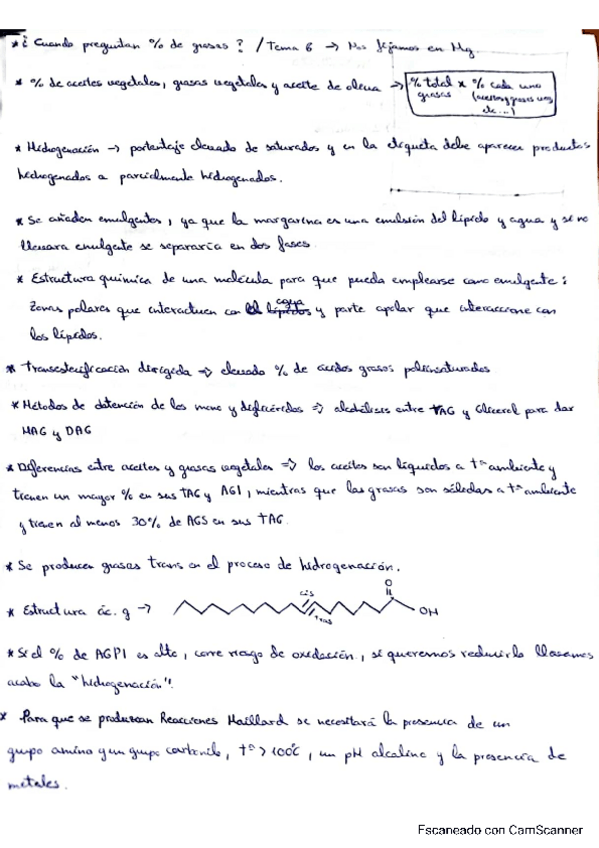 * ¿ Cuando preguntan % de grasas ? / Tema 6 → Nos fijamos en Mg.
* % de aceites vegetales, grasas vegetales y aceite de oliva → % total grasas x % cada uno (aceites y grasas veg, etc...)
* Hidrogenación → porcentaje elevado de saturados y en la etiqueta debe aparecer productos
hidrogenados o parcialmente hidrogenados.
* Se añaden emulgentes, ya que la margarina es una emulsión del lípido y agua y si no
llevara emulgente se separaría en dos fases.
* Estructura química de una molécula para que pueda emplearse como emulgente :
Zonas polares que interactuen con el agua y parte apolar que interaccione con
los lípidos.
* Transesterificación dirigida → elevado % de ácidos grasos poliinsaturados
* Métodos de obtención de los mono y diglicéridos ⇒ alcohólisis entre TAG y Glicerol para dar
MAG y DAG
* Diferencias entre aceites y grasas vegetales ⇒ los aceites son líquidos a tª ambiente y
tienen un mayor % en sus TAG y AGI, mientras que las grasas son sólidas a tª ambiente
y tienen al menos 30% de AGS en sus TAG.
* Se producen grasas trans en el proceso de hidrogenación.
* Estructura ác. g → cis trans O OH
* Si el % de AGPI es alto, corre riesgo de oxidación, si queremos reducirlo llevamos
acabo la "hidrogenación".
* Para que se produzcan Reacciones Maillard se necesitará la presencia de un
grupo amino y un grupo carbonilo, tª > 100ºC, un pH alcalino y la presencia de
metales.
Escaneado con CamScanner